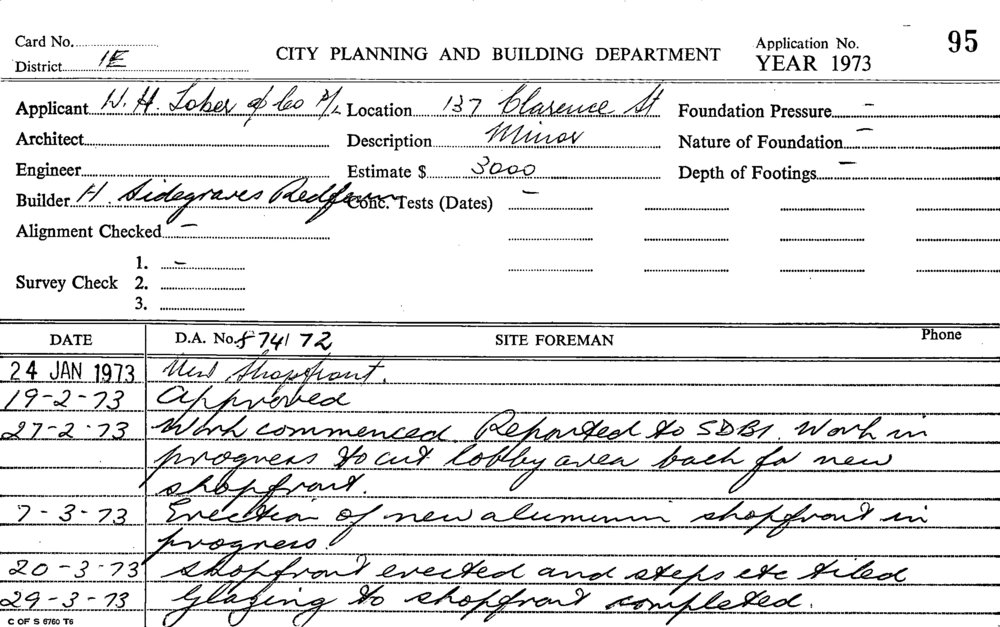 Card No.
CITY PLANNING AND BUILDING DEPARTMENT
Application No. 95
District 1E
YEAR 1973
Applicant W. H. Lober & Co P/L Location 137 Clarence St Foundation Pressure –
Architect Description Minor Nature of Foundation –
Engineer Estimate $ 3000 Depth of Footings –
Builder H. Sidegraves Redfern Conc. Tests (Dates) –
Alignment Checked –
Survey Check 1. –
2.
3.
DATE D.A. No. 874/72 SITE FOREMAN Phone
24 JAN 1973 New Shopfront.
19-2-73 Approved
27-2-73 Work commenced. Reported to SDBI. Work in
progress to cut lobby area back for new
shopfront.
7-3-73 Erection of new aluminin shopfront in
progress.
20-3-73 Shopfront erected and steps etc tiled
29-3-73 Glazing to shopfront completed.
C OF S 6760 T6